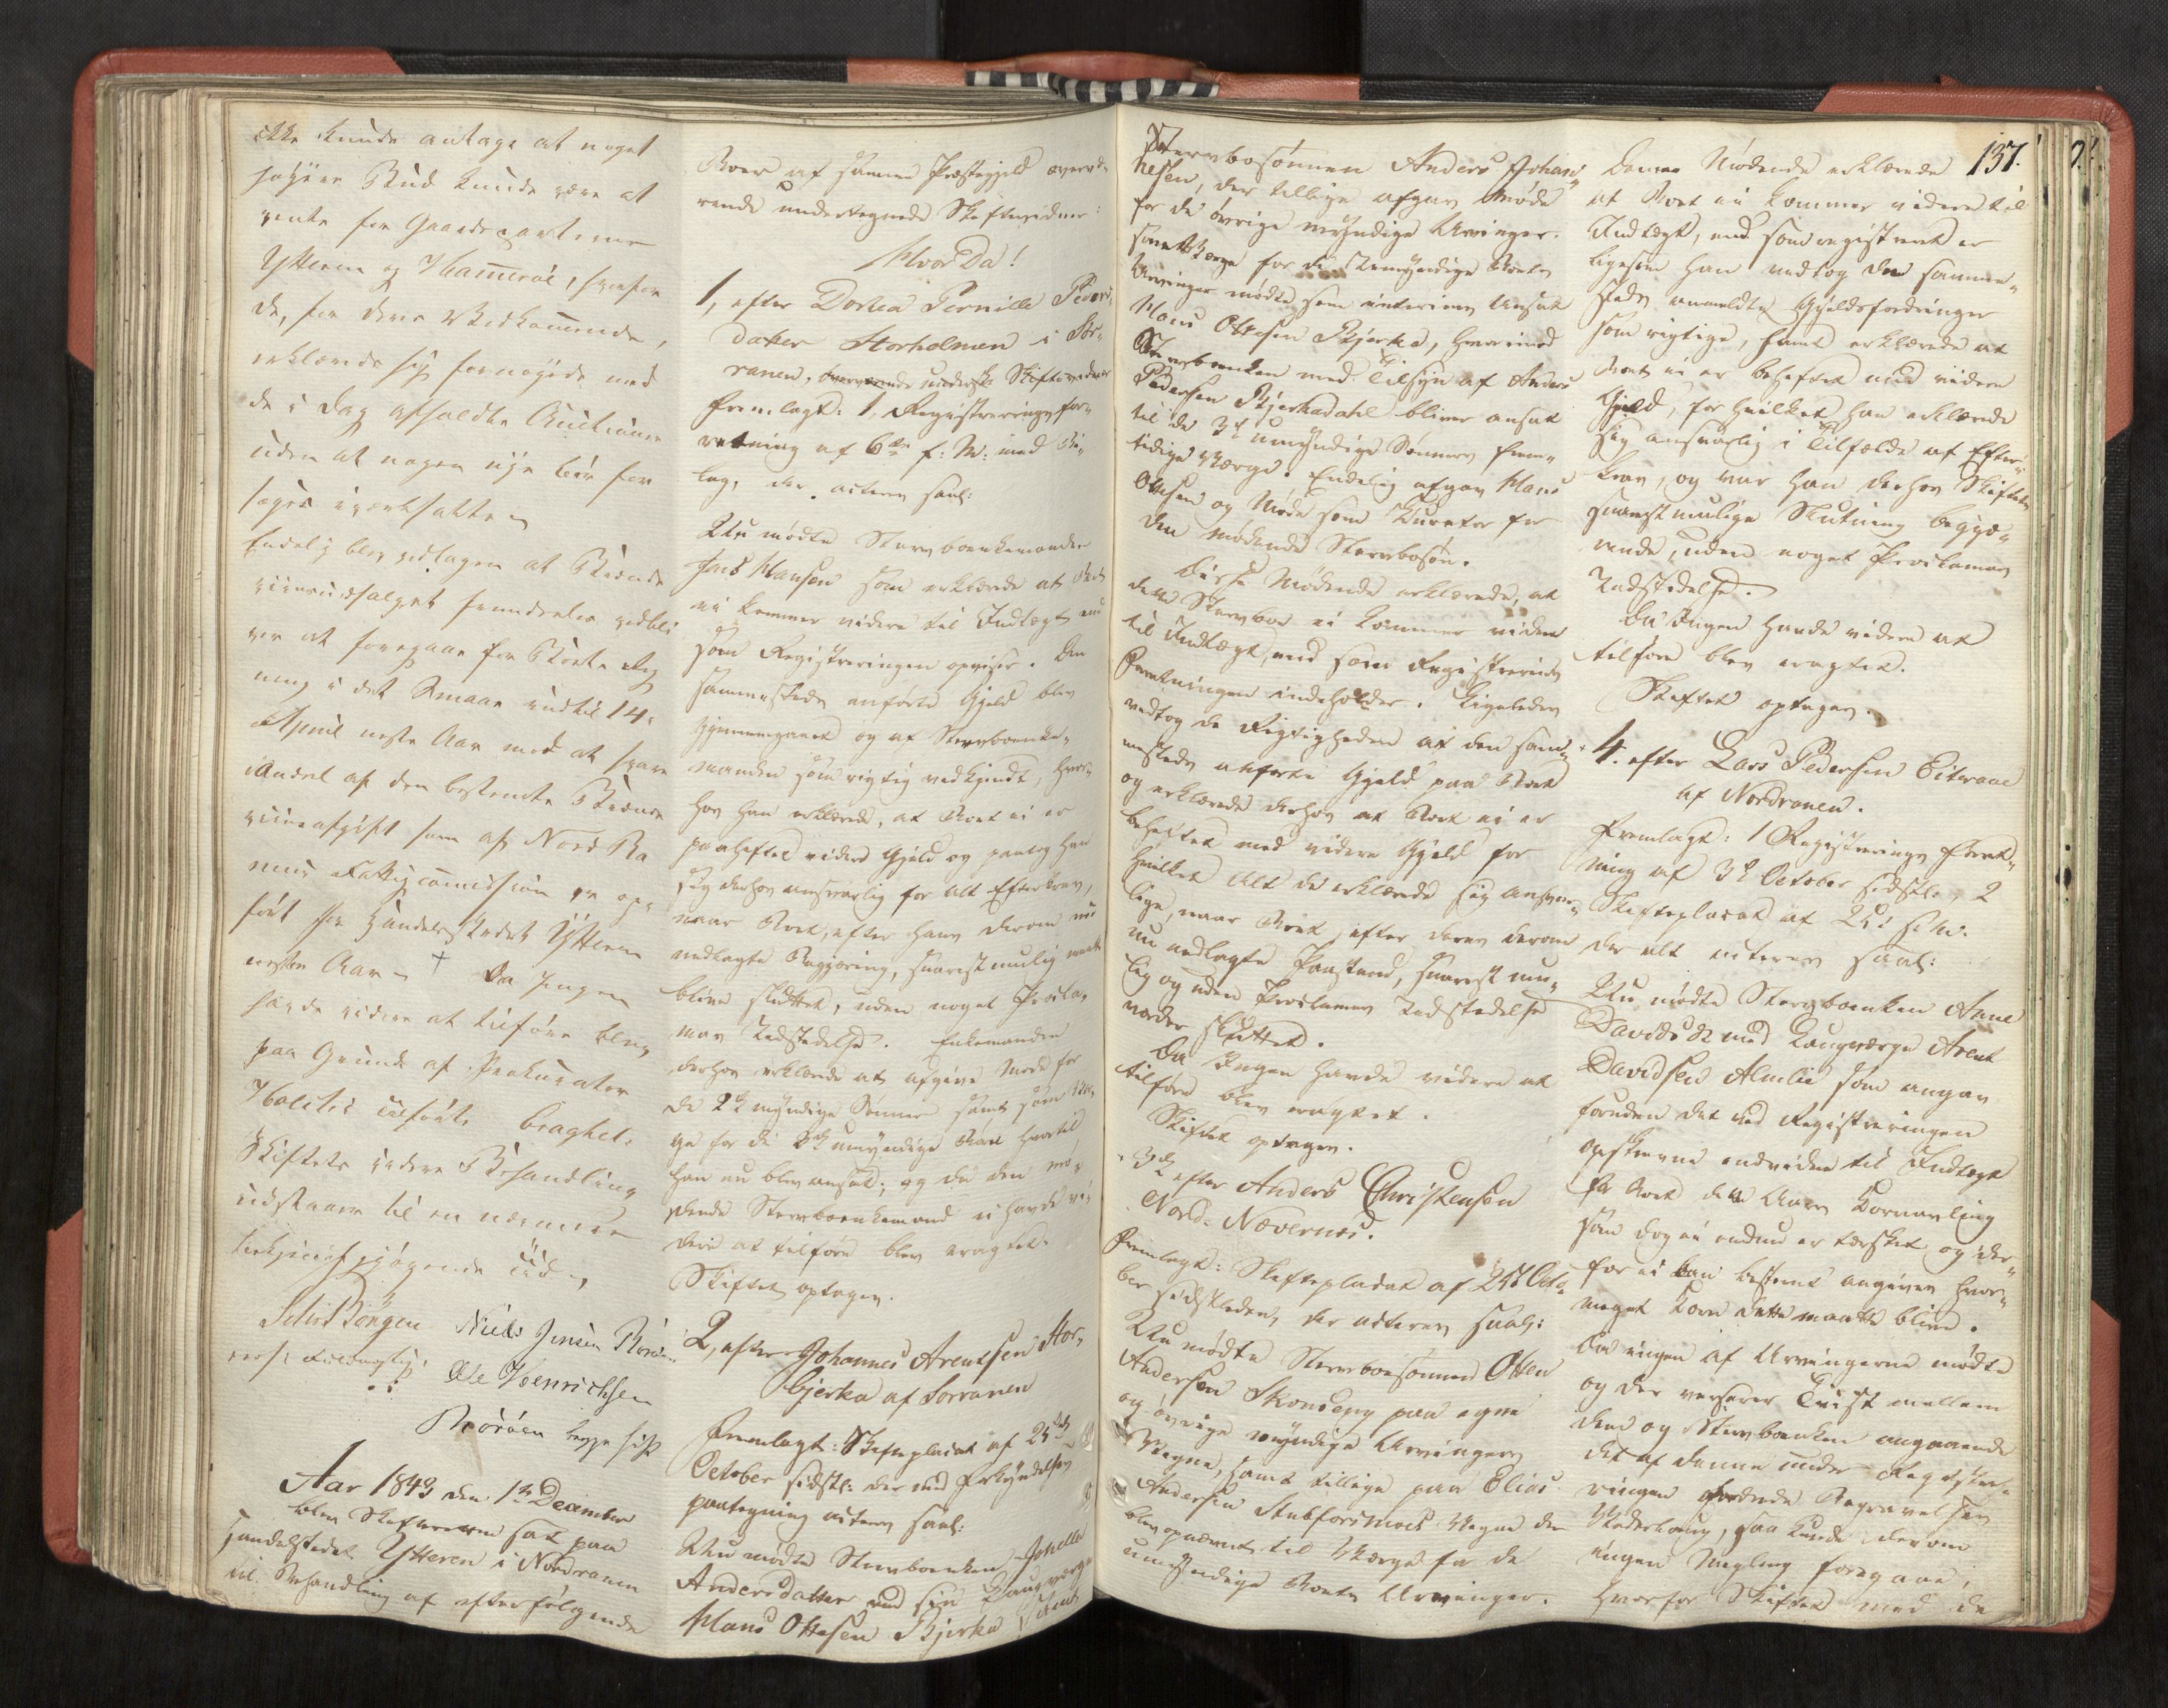 ikke kunde antage at noget
høiere Bud kunde være at
vente for Gaardeparterne
Ytteren og Hammerøe, hvorfor
de, for deres Vedkommende,
erklærede sig fornøiede med
de i Dag afholdte Auctioner
uden at nogen nye bør for
søges iværksatte
Endelig blev vedtagen at Brænde
viinsudsalget fremdeles vedbli
ver at foregaae for Boets Reg
ning i det Smaae indtil 14
April neste Aar mod at svare
Andel af den bestemte Brænde
viinsafgift som af Nord Ra
nens Fattigcommission er op
ført for Handelsstedet Ytteren
neste Aar Da Ingen
havde videre at tilføre blev
paa Grund af Prokurator
tilførte eragtet:
Skiftets videre Behandling
udstaaer til en nærmere
bekjendtgjørende Tid
Niels Jensen
Ole Hoenrichsen
begge
Aar 1843 den 1te December
blev Skifteretten sat paa
Handelstedet Ytteren i Nordranen
til Behandling af efterfølgende
Boer af samme Præstegjeld overvæ
rende undertegnede Skiftevidner:
Hvor Da!
1, efter Dorthea Pernille Peders
datter Storholmen i Sør
ranen, overværende underskr. Skiftevidner
fremlagt: 1 Registreringsfor
retning af 6te f: M: med Bi
lag, der acteres saal:
Nu mødte Stervboenkemanden
Jens Hansen som erklærede at Boet
ei kommer videre til Indtægt end
som Registreringen opviser. Den
sammesteds anførte Gjeld blev
gjennemgaaet og af Stervboenke
manden som rigtig vedkjendt, hvor
hos han erklærede, at Boet ei er
paaheftet videre Gjeld og paatog han
sig derhos ansvarlig for alt Efterkrav,
naar Boet, efter hans derom nu
nedlagte Begjæring, snarest mulig maatte
blive sluttet, uden noget Procla
mas Udstedelse. Enkemanden
derhos erklærede at afgive Møde for
de 2de myndige Sønner samt som Vær
ge for de umyndige Børn hvortil
han nu blev ansat; og da den mø
dende Stervboenkemand ei havde vi
dere at tilføre blev eragtet.
Skiftet optages.
2, efter Johannes Arentsen Stor
bjerka af Sørranen
fremlagt: Skifteplacat af 25de
October sidstl: der med Forkyndelses
paategning acteres saal:
Nu mødte Stervboenken Johella
Andersdatter med sin Laugværge
Hans Ottesen Bjerka
Stervbosønnen Anders Johan
nesen, der tillige afgav Møde
for de øvrige myndige Arvinger.
som Værge for de umyndige Boets
Arvinger mødte som interims Ansat
Hans Ottesen Bjerka, hvorimod
Stervboenken med Tilsyn af Anders
Pedersen Bjerkadahl bliver ansat
til de 3de umyndige Sønners frem
tidige Værge. Endelig afgav Hans
Ottesen og Møde som Curator for
den mødende Stervbosøn.
Disse Mødende erklærede, at
dette Stervboe ei kommer videre
til Indtægt, end som Registrerings
Forretningen indeholder. Ligeledes
vedtog de Rigtigheden af den sam
mesteds anførte Gjeld paa Boet
og erklærede derhos at Boet ei er
beheftet med videre Gjeld for
hvilket Alt de erklærede sig ansvar
lige, naar Boet, efter deres derom
nu nedlagte Paastand, snarest mu
lig og uden Proclamas Udstedelse
vorder sluttet.
Da Ingen havde videre at
tilføre blev eragtet.
Skiftet optages.
3de efter Anders Christensen
Nord-Nævernes.
Fremlagt: Skifteplacat af 25de Octo
ber sidstleden, der acteres saal:
Nu mødte Stervboesønnen Otten
Andersen Skonseng paa egne
og øvrige myndige Arvingers
Vegne, samt tillige paa Elias
Andersen Stubforsmoes Vegne der
blev opnævnt til Værge for de
umyndige Boets Arvinger.
137.
Denne Mødende erklærede
at Boet ei kommer videre til
Indtægt, end som registreret er
ligesom han vedtog den samme
steds anmeldte Gjeldsfordringer
som rigtige, samt erklærede at
Boet ei er beheftet med videre
Gjeld, for hvilket han erklærede
sig ansvarlig i Tilfælde af Efter
krav, og var han derhos Skiftets
snarestmulige Slutning begjæ
rende, uden noget Proclamas
Udstedelse.
Da Ingen havde videre at
tilføre blev eragtet.
Skiftet optages.
4. efter Lars Pedersen Eiteraae
af Nordranen.
Fremlagt: 1 Registrerings Forret
ning af 3de October sidstl., 2
Skifteplacat af 25de s: M:
der alt acteres saal:
Nu mødte Stervboenken Anne
Davidsdr med Laugværge Arent
Davidsen Almlie som angav
foruden det ved Registreringen
opskrevne endvidere til Indtægt
for Boet dette Aars Kornavling
som dog ei endnu er tærsket og der
for ei kan bestemt angives hvor
meget Korn dette maatte blive.
Da ingen af Arvingerne mødte
og der verserer Tvist mellem
dem og Stervboenken angaaende
det af denne under Registre
ringen fordrede Begravelses
Vederlaug, saa kunde derom
ingen Megling foregaae,
hvorfor Skiftet med de